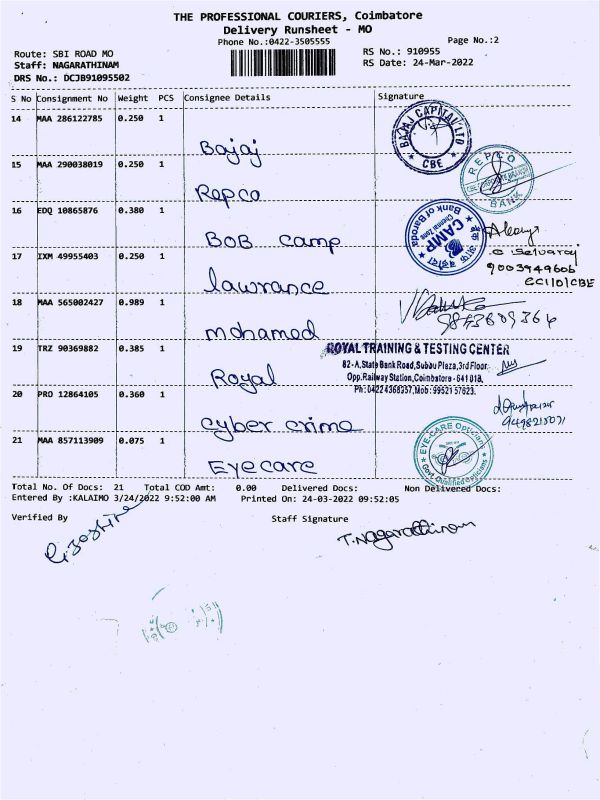 THE PROFESSIONAL COURIERS, Coimbatore
Delivery Runsheet - MO
Phone No.:0422-3505555
Page No.:2
Route: SBI ROAD MO
RS No.: 910955
Staff: NAGARATHINAM
RS Date: 24-Mar-2022
DRS No.: DCJB91095502
S No Consignment No Weight PCS Consignee Details Signature
14 MAA 286122785 0.250 1
Bajaj
BAJAJ CAPITAL LTD
CBE
15 MAA 290038019 0.250 1
Repco
REPCO
BANK
16 EDQ 10865876 0.380 1
BOB camp
Bank of Baroda
CAMP
Chennai Zone
17 IXM 49955403 0.250 1
lawrance
selvaraj
9003949606
ECI/O/CBE
18 MAA 565002427 0.989 1
mohamed
9843809364
19 TRZ 90369882 0.385 1
Royal
ROYAL TRAINING & TESTING CENTER
82-A,State Bank Road,Subbu Plaza,3rd Floor,
Opp.Railway Station,Coimbatore - 641 018.
Ph: 0422 4368357,Mob: 99521 57623.
20 PRO 12864105 0.360 1
cyber crime
9498215071
21 MAA 857113909 0.075 1
Eyecare
EYE-CARE Opticians
Govt Qualified Opticians
Total No. Of Docs: 21 Total COD Amt: 0.00 Delivered Docs: Non Delivered Docs:
Entered By :KALAIMO 3/24/2022 9:52:00 AM Printed On: 24-03-2022 09:52:05
Verified By Staff Signature
T.Nagarathinam